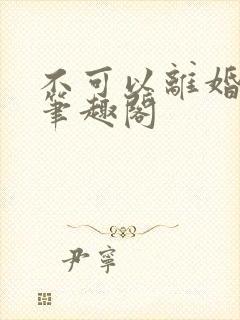 不可以離婚
筆趣閣
尹寧